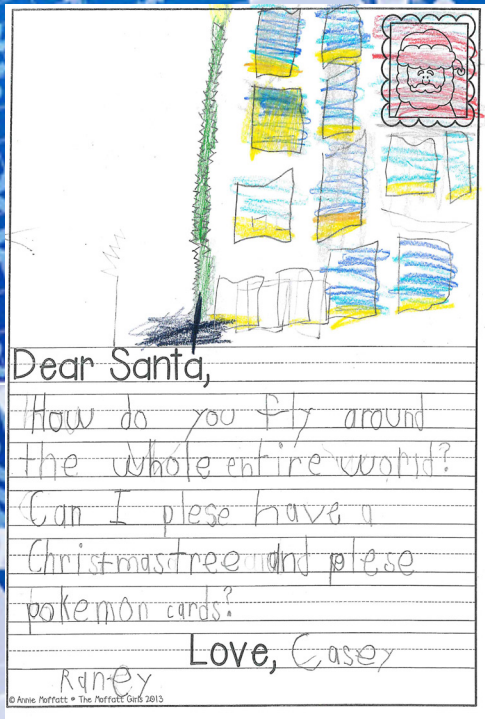 Dear Santa,
How do you fly around
the whole entire world?
Can I plese have a
Christmas tree and plese
pokemon cards?
Love, Casey
Raney
© Annie Moffatt • The Moffatt Girls 2013